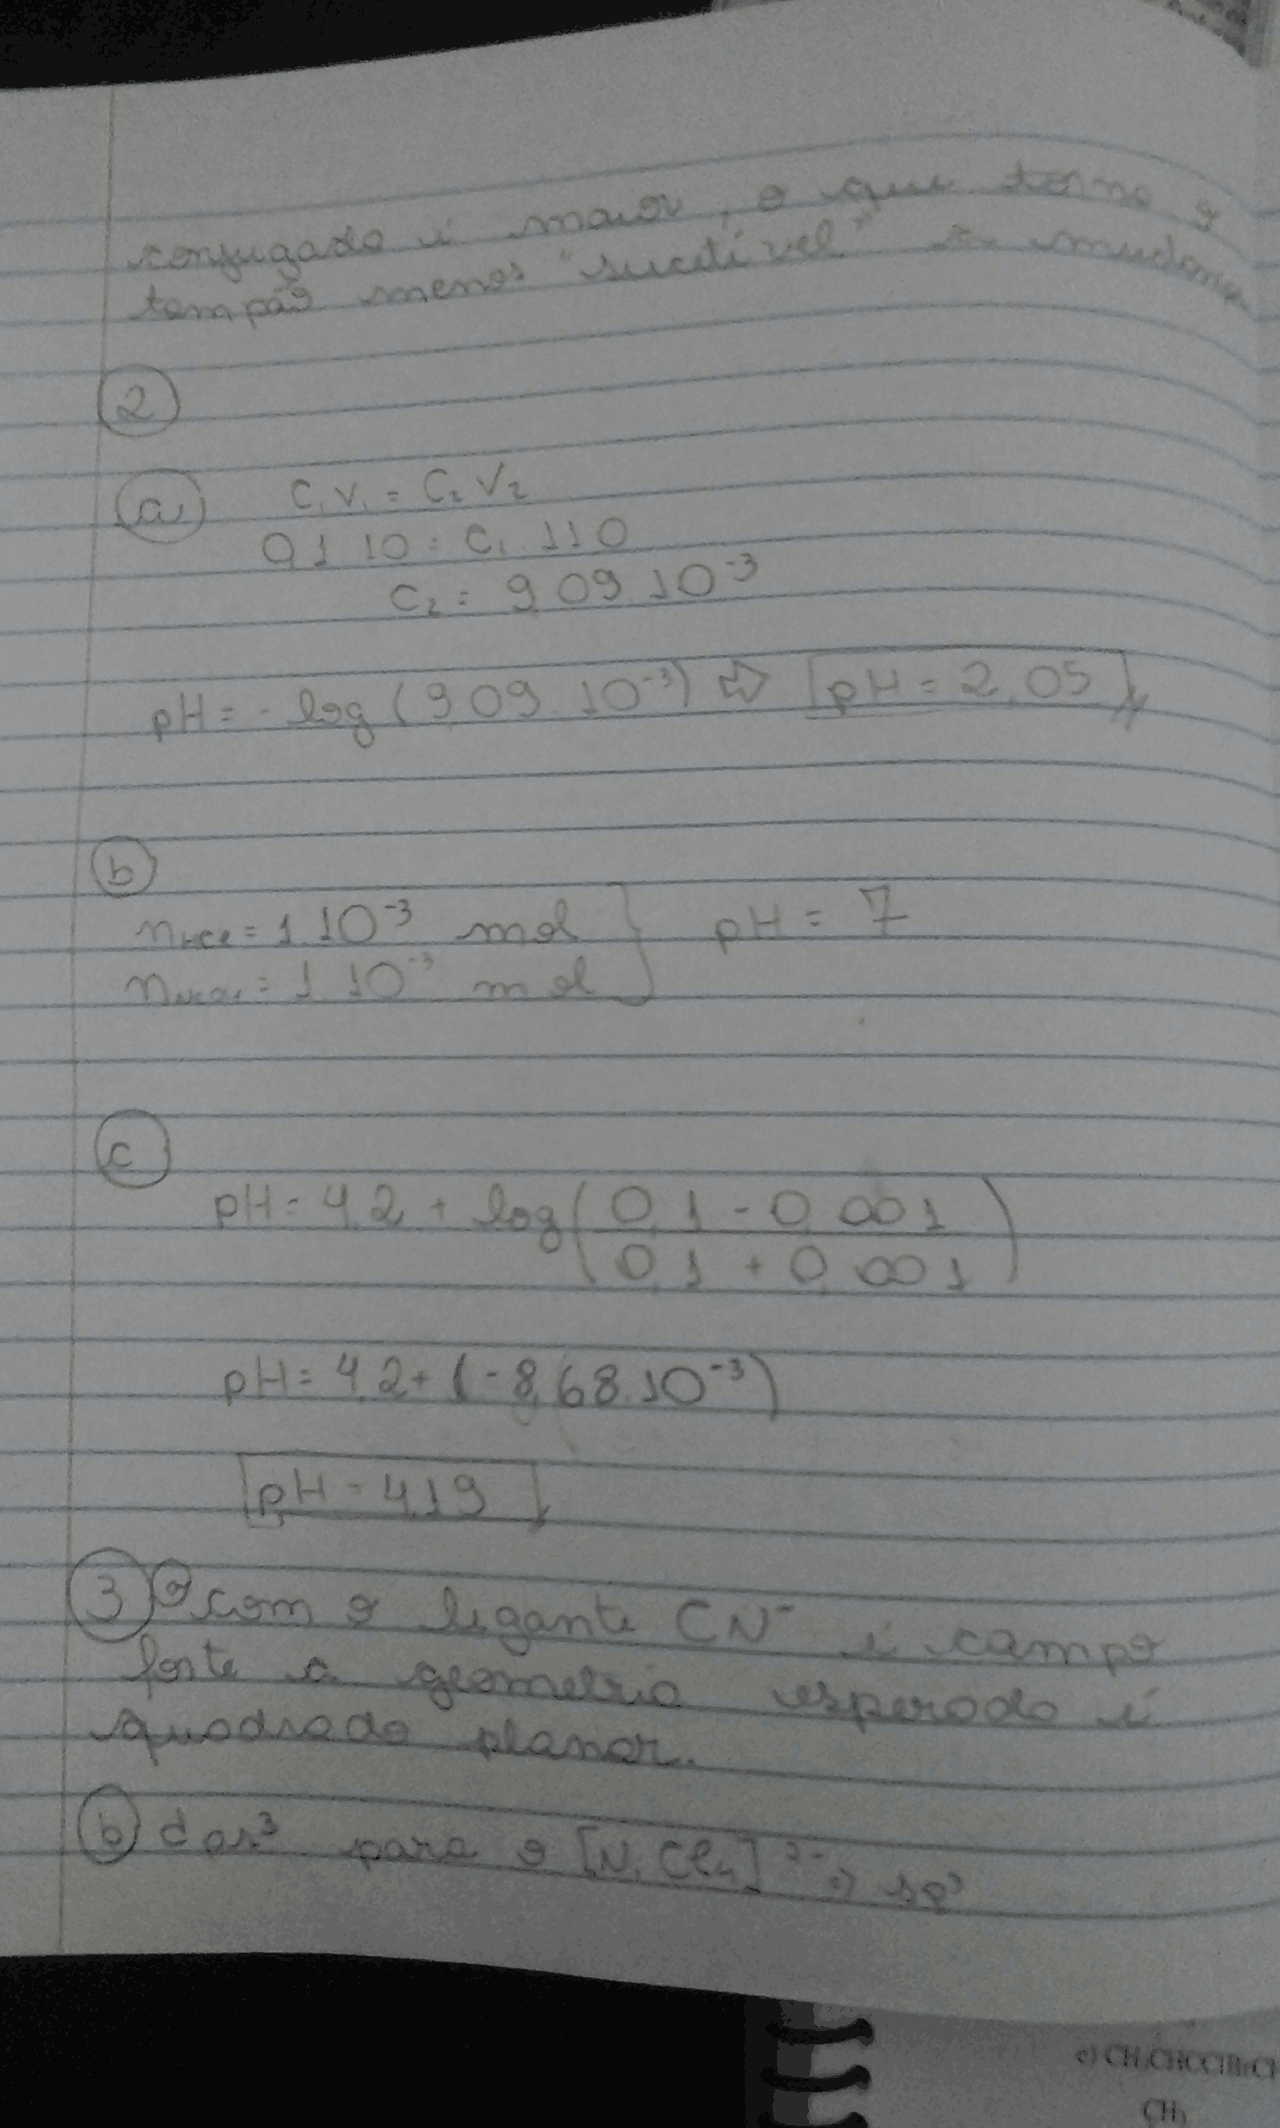 conjugado é maior, o que torna o
tampão menos "sucetível" a mudança
2
a C₁V₁ = C₂V₂
0,1 . 10 = C₁ . 110
C₂ = 9,09.10⁻³
pH = - log (9,09.10⁻³) ⇨ pH = 2,05
b
nHCl = 1.10⁻³ mol
pH = 7
n = 1.10⁻³ mol
c
pH = 4,2 + log (0,1 - 0,001
0,1 + 0,001)
pH = 4,2 + (-8,68.10⁻³)
pH = 4,19
3 a com o ligante CN⁻ é campo
forte a geometria esperada é
quadrado planar.
b dsp³ para o [NiCl₄]²⁻ → sp³
c) CH₃CHCClBrCH
CH₃